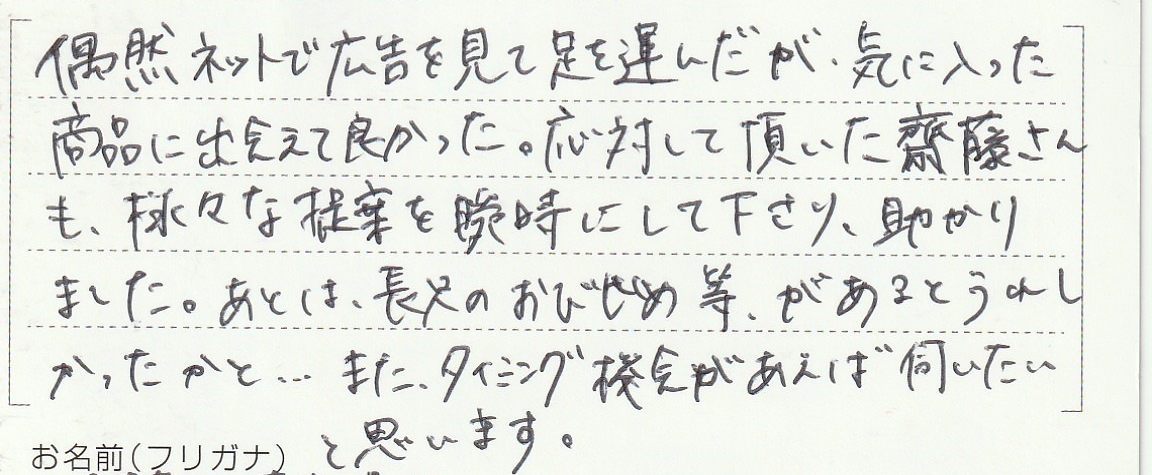 偶然ネットで広告を見て足を運んだが、気に入った
商品に出会えて良かった。応対して頂いた齋藤さん
も、様々な提案を瞬時にして下さり、助かり
ました。あとは、長尺のおびじめ等、があるとうれし
かったかと… また、タイミング機会があえば伺いたい
と思います。
お名前(フリガナ)